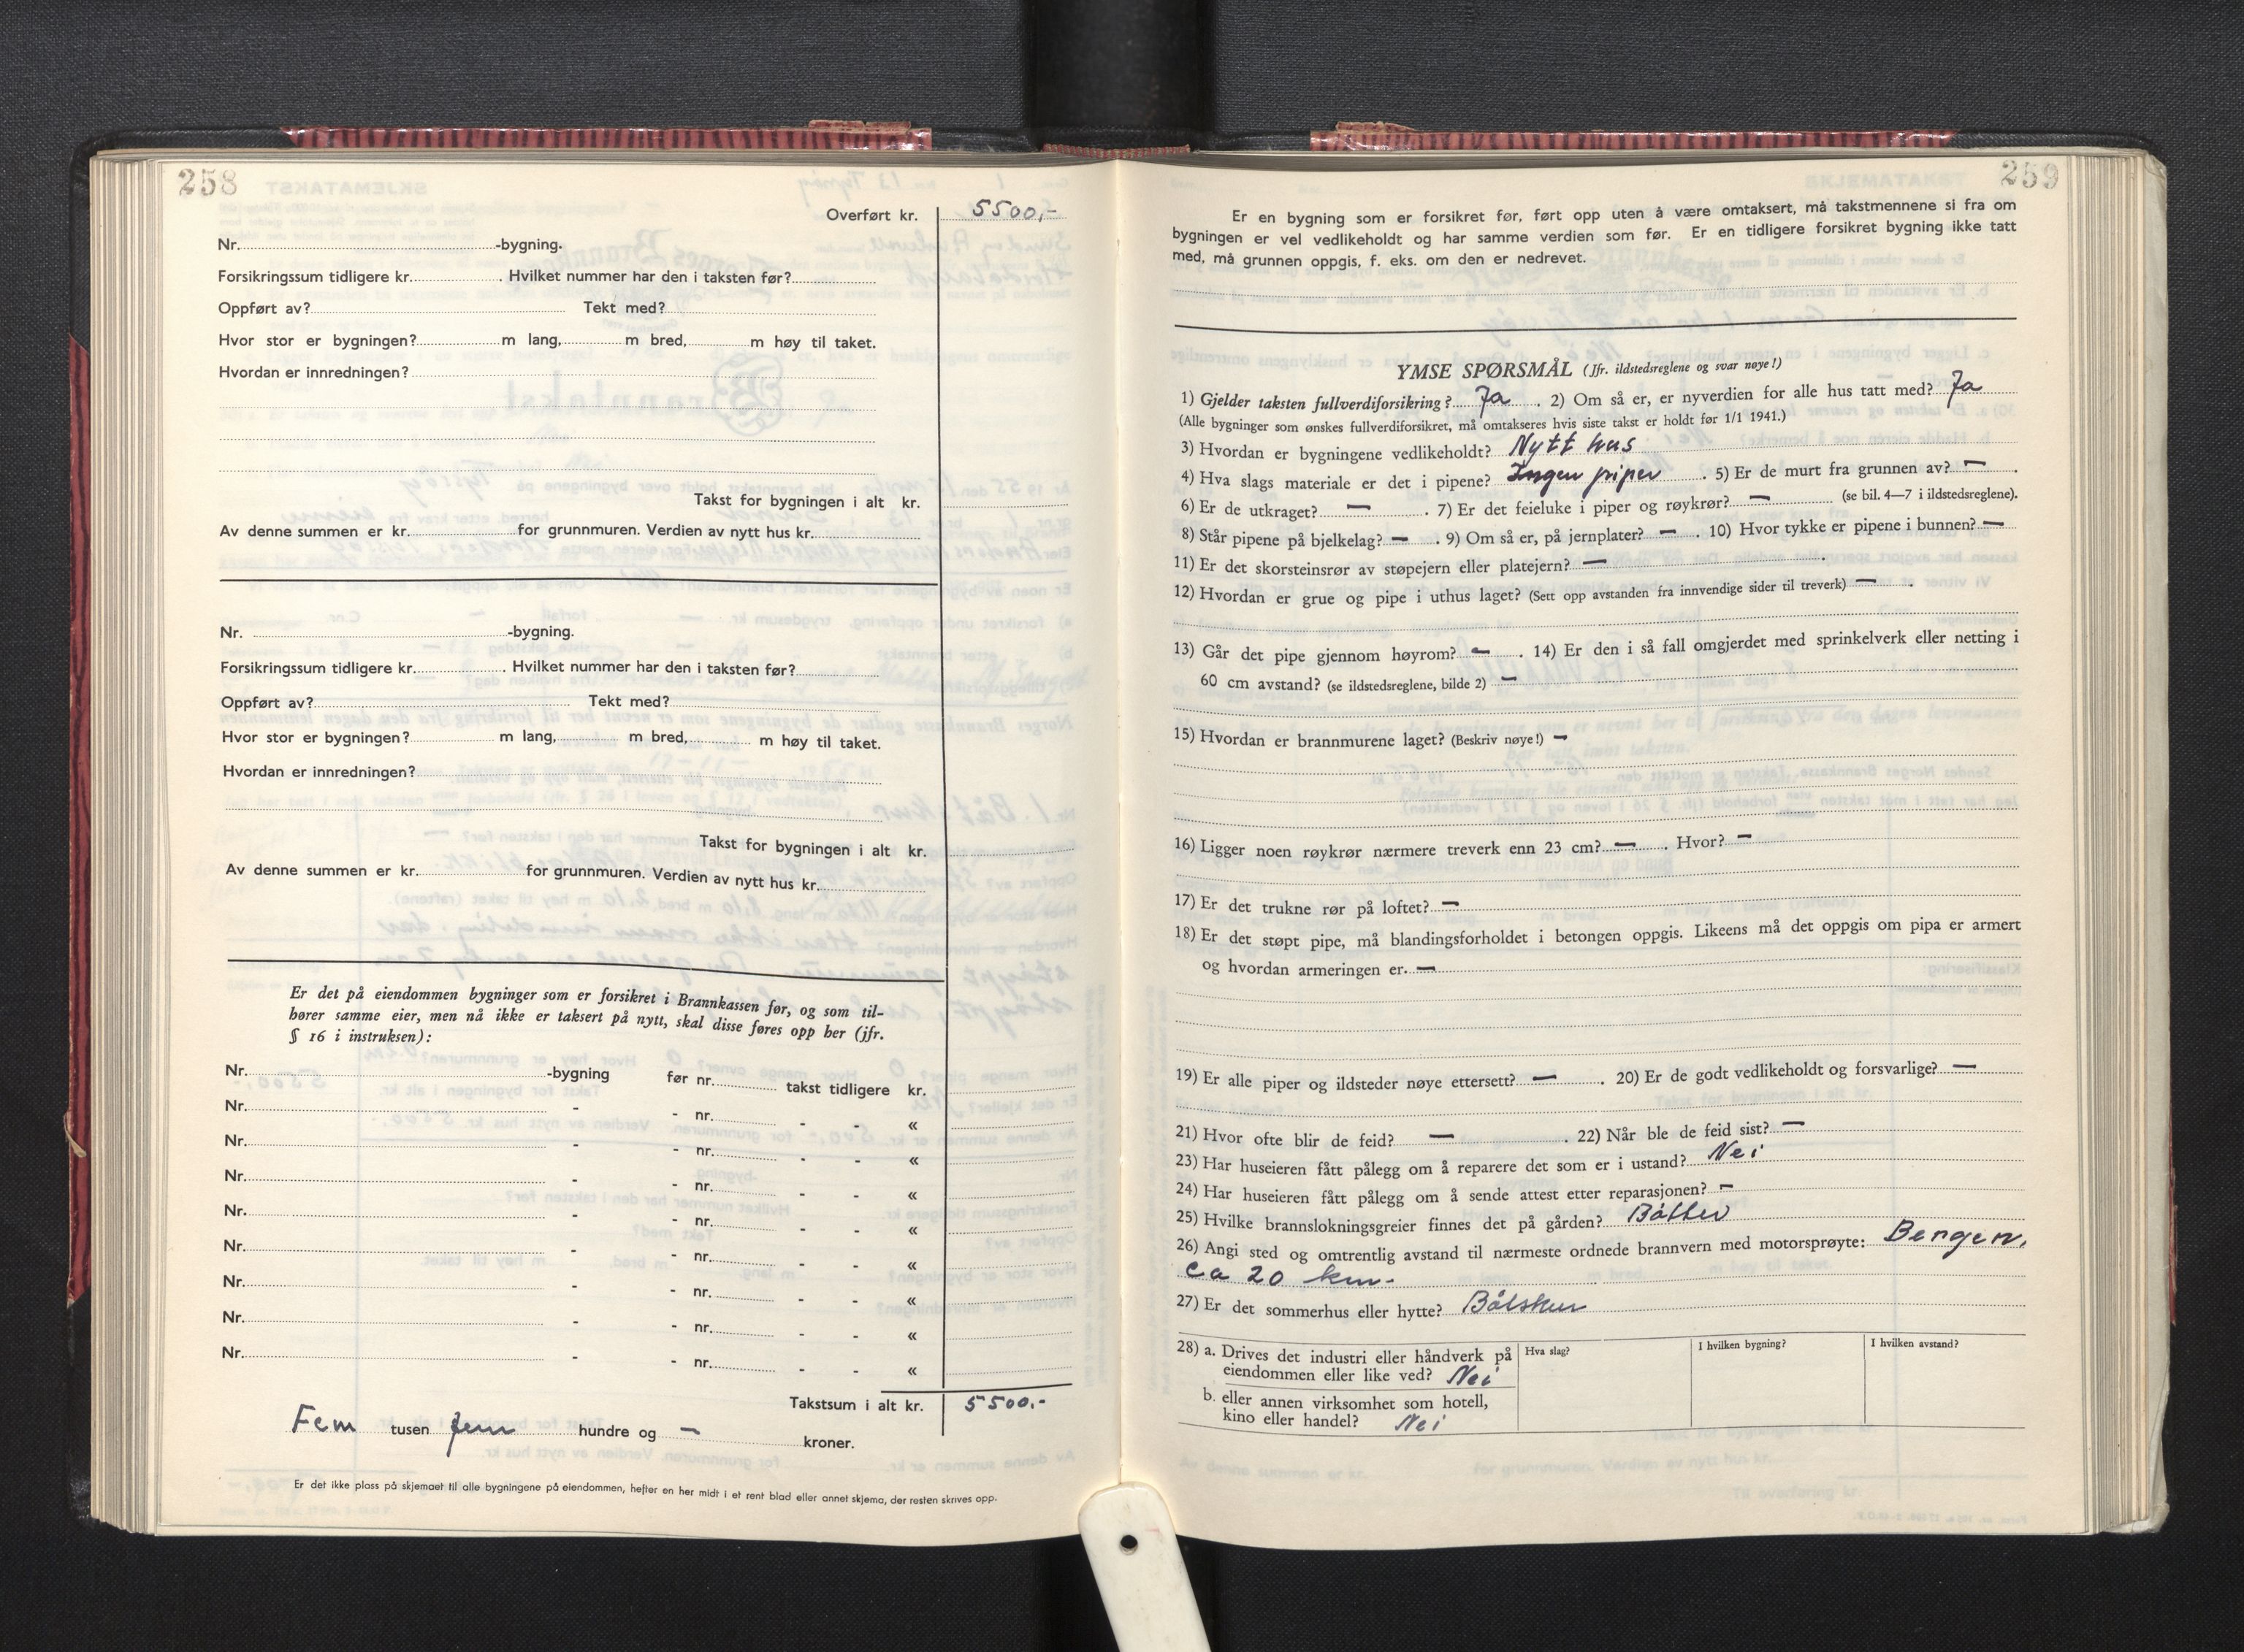 258
Overført kr. 5500,-
Nr. -bygning.
Forsikringssum tidligere kr. . Hvilket nummer har den i taksten før?
Oppført av? Tekt med?
Hvor stor er bygningen? m lang, m bred, m høy til taket.
Hvordan er innredningen?
Takst for bygningen i alt kr.
Av denne summen er kr. for grunnmuren. Verdien av nytt hus kr.
Nr. -bygning.
Forsikringssum tidligere kr. . Hvilket nummer har den i taksten før?
Oppført av? Tekt med?
Hvor stor er bygningen? m lang, m bred, m høy til taket.
Hvordan er innredningen?
Takst for bygningen i alt kr.
Av denne summen er kr. for grunnmuren. Verdien av nytt hus kr.
Er det på eiendommen bygninger som er forsikret i Brannkassen før, og som til-
hører samme eier, men nå ikke er taksert på nytt, skal disse føres opp her (jfr.
§ 16 i instruksen):
Nr. -bygning før nr. takst tidligere kr.
Nr. - - nr. - - «
Nr. - - nr. - - «
Nr. - - nr. - - «
Nr. - - nr. - - «
Nr. - - nr. - - «
Nr. - - nr. - - «
Nr. - - nr. - - «
Nr. - - nr. - - «
Takstsum i alt kr. 5500.-
Fem tusen fem hundre og — kroner.
Er det ikke plass på skjemaet til alle bygningene på eiendommen, hefter en her midt i et rent blad eller annet skjema, der resten skrives opp.
259
Er en bygning som er forsikret før, ført opp uten å være omtaksert, må takstmennene si fra om
bygningen er vel vedlikeholdt og har samme verdien som før. Er en tidligere forsikret bygning ikke tatt
med, må grunnen oppgis, f. eks. om den er nedrevet.
YMSE SPØRSMÅL (Jfr. ildstedsreglene og svar nøye!)
1) Gjelder taksten fullverdiforsikring? Ja . 2) Om så er, er nyverdien for alle hus tatt med? Ja
(Alle bygninger som ønskes fullverdiforsikret, må omtakseres hvis siste takst er holdt før 1/1 1941.)
3) Hvordan er bygningene vedlikeholdt? Nytt hus
4) Hva slags materiale er det i pipene? Ingen piper . 5) Er de murt fra grunnen av? — .
6) Er de utkraget? — . 7) Er det feieluke i piper og røykrør? — (se bil. 4—7 i ildstedsreglene).
8) Står pipene på bjelkelag? — . 9) Om så er, på jernplater? — . 10) Hvor tykke er pipene i bunnen? —
11) Er det skorsteinsrør av støpejern eller platejern? — .
12) Hvordan er grue og pipe i uthus laget? (Sett opp avstanden fra innvendige sider til treverk) — .
13) Går det pipe gjennom høyrom? — . 14) Er den i så fall omgjerdet med sprinkelverk eller netting i
60 cm avstand? (se ildstedsreglene, bilde 2) —
15) Hvordan er brannmurene laget? (Beskriv nøye!) —
16) Ligger noen røykrør nærmere treverk enn 23 cm? — . Hvor? —
17) Er det trukne rør på loftet? —
18) Er det støpt pipe, må blandingsforholdet i betongen oppgis. Likeens må det oppgis om pipa er armert
og hvordan armeringen er. —
19) Er alle piper og ildsteder nøye ettersett? — . 20) Er de godt vedlikeholdt og forsvarlige? —
21) Hvor ofte blir de feid? — . 22) Når ble de feid sist? —
23) Har huseieren fått pålegg om å reparere det som er i ustand? Nei
24) Har huseieren fått pålegg om å sende attest etter reparasjonen? —
25) Hvilke brannslokningsgreier finnes det på gården? Bøtter
26) Angi sted og omtrentlig avstand til nærmeste ordnede brannvern med motorsprøyte: Bergen,
ca 20 km.
27) Er det sommerhus eller hytte? Båtskur
28) a. Drives det industri eller håndverk på Hva slag? I hvilken bygning? I hvilken avstand?
eiendommen eller like ved? Nei
b. eller annen virksomhet som hotell,
kino eller handel? Nei